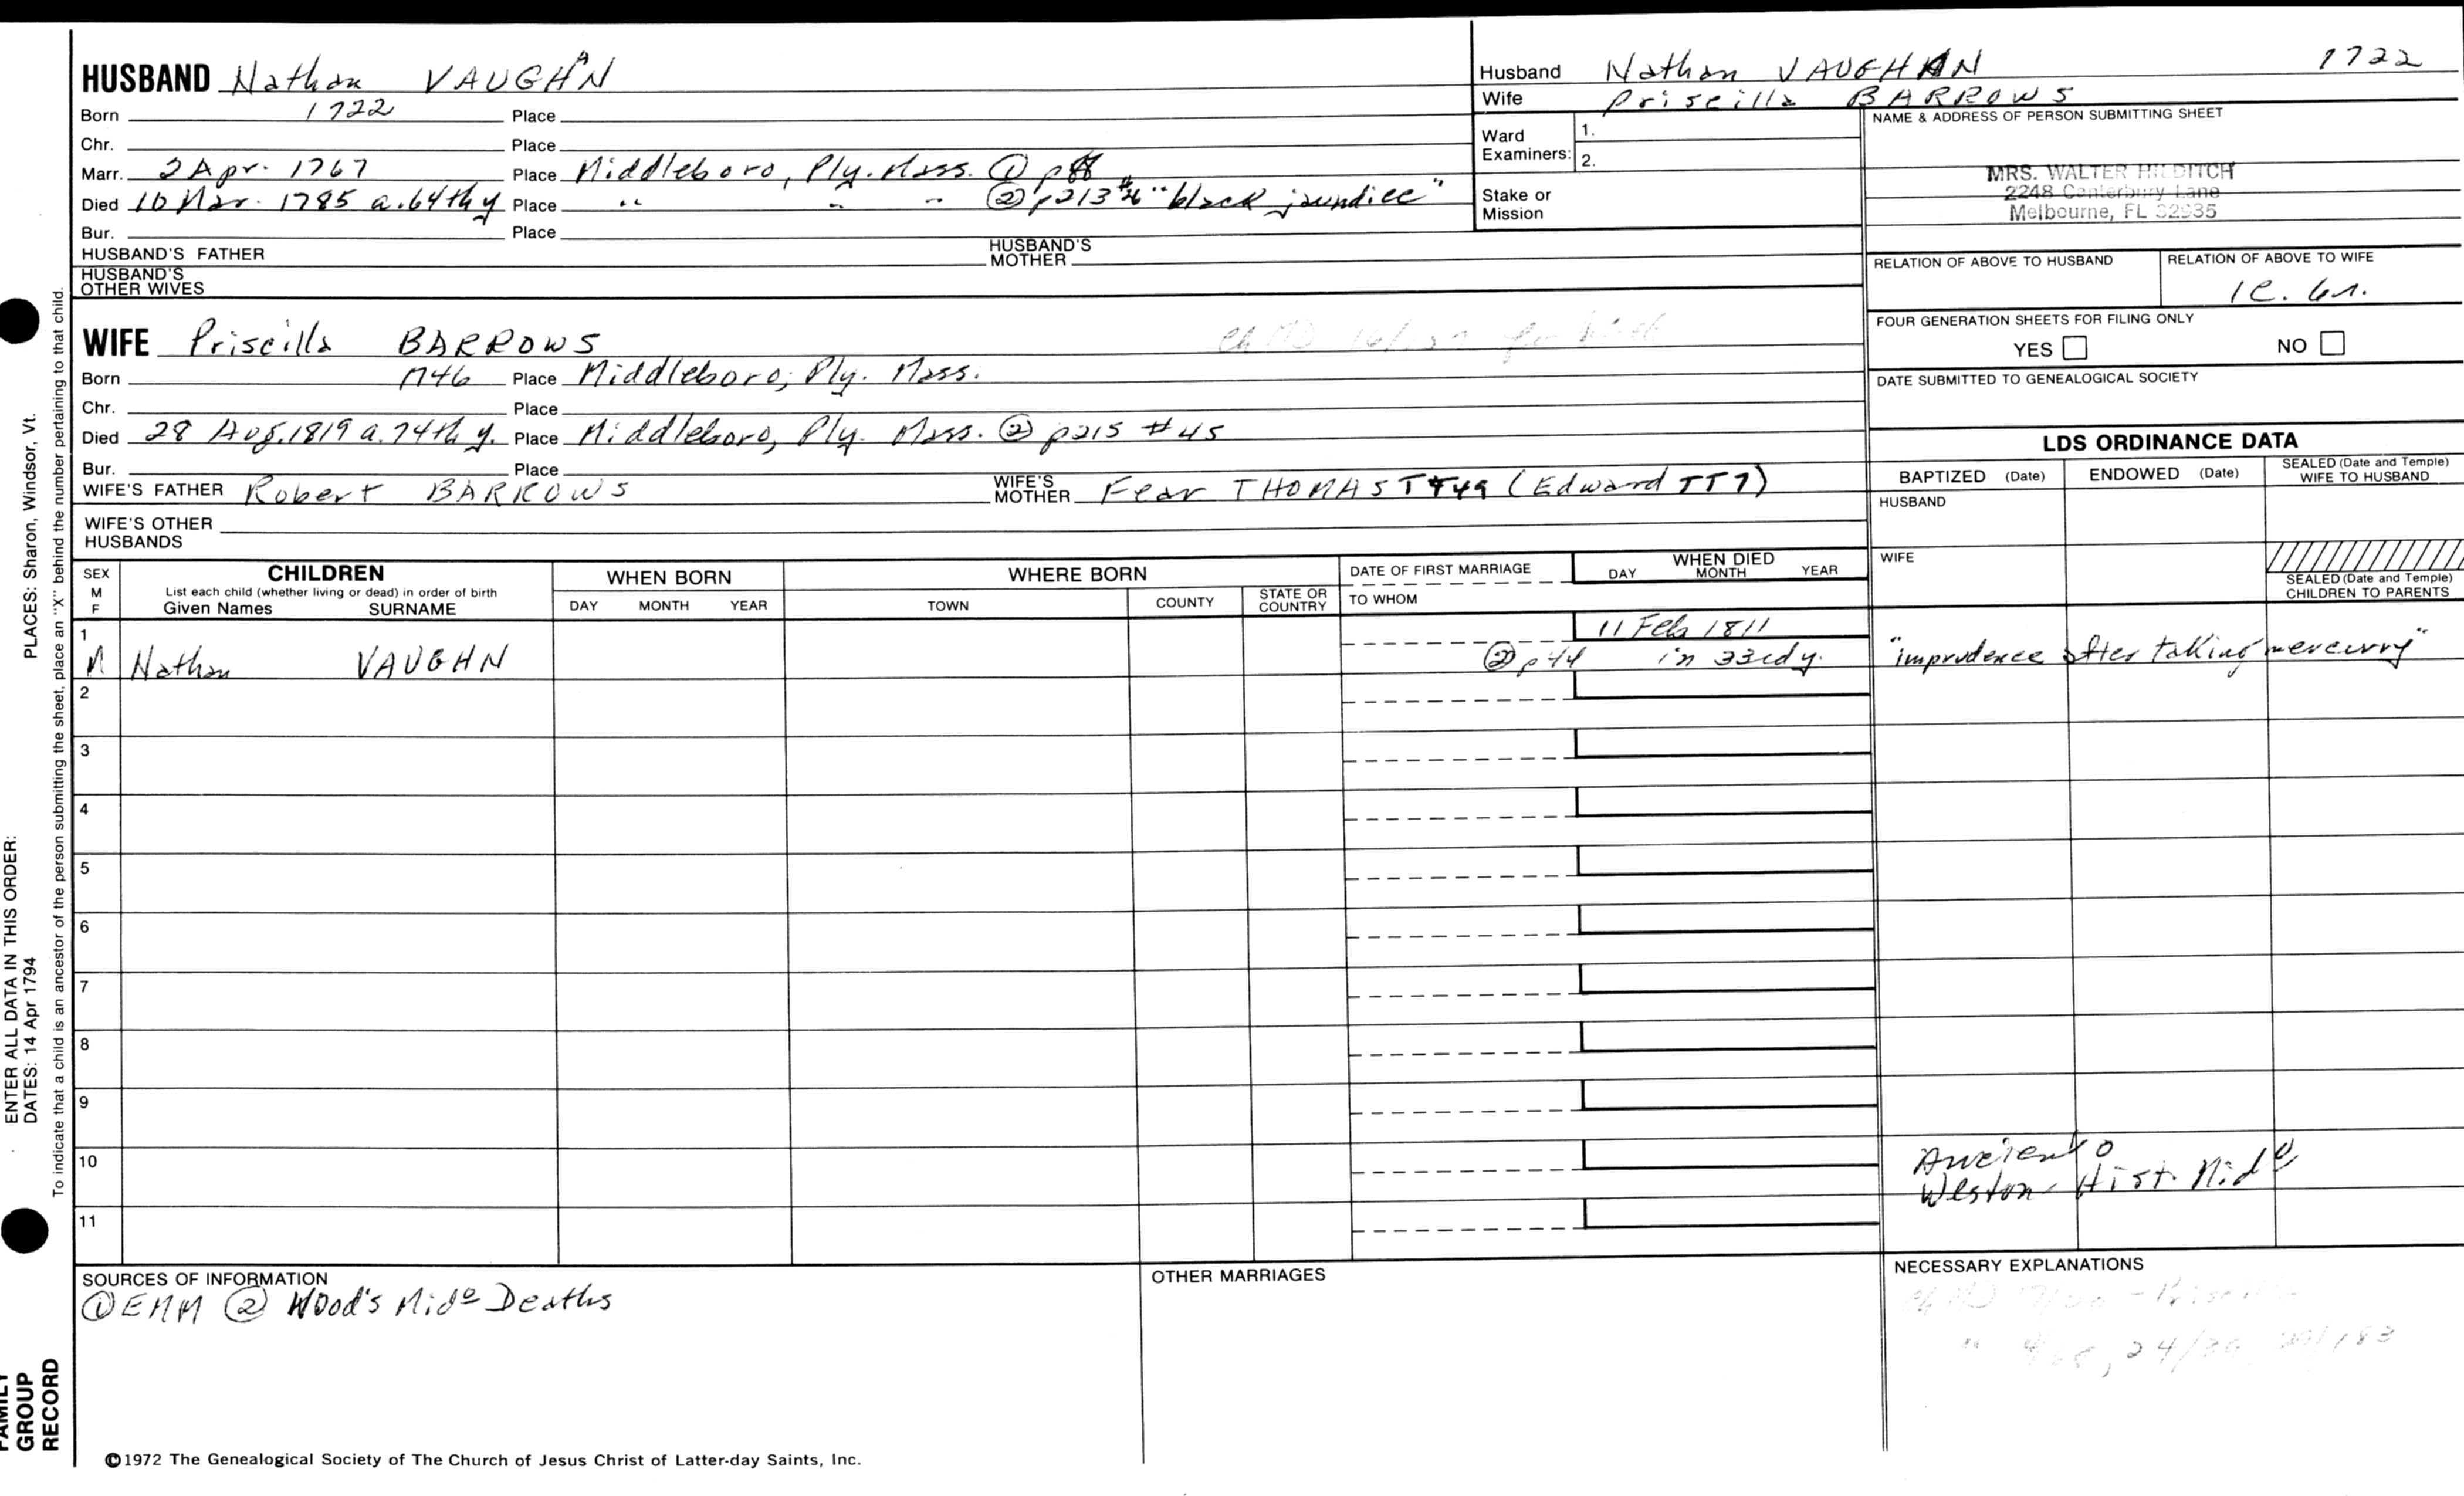 HUSBAND Nathan VAUGHAN
Born 1722 Place
Chr. Place
Marr. 2 Apr. 1767 Place Middleboro, Ply. Mass. ① p
Died 10 Mar. 1785 a. 64th y Place " " " ② p213 "black jaundice"
Bur. Place
HUSBAND'S FATHER HUSBAND'S MOTHER
HUSBAND'S OTHER WIVES
Husband Nathan VAUGHAN 1722
Wife Priscilla BARROWS
Ward Examiners: 1.
2.
Stake or Mission
NAME & ADDRESS OF PERSON SUBMITTING SHEET
MRS. WALTER HILDITCH
2248 Canterbury Lane
Melbourne, FL 32935
RELATION OF ABOVE TO HUSBAND RELATION OF ABOVE TO WIFE
1c. 6r.
FOUR GENERATION SHEETS FOR FILING ONLY
YES NO
DATE SUBMITTED TO GENEALOGICAL SOCIETY
WIFE Priscilla BARROWS
Born 1746 Place Middleboro, Ply. Mass.
Chr. Place
Died 28 Aug. 1819 a. 74th y. Place Middleboro, Ply. Mass. ② p215 #45
Bur. Place
WIFE'S FATHER Robert BARROWS WIFE'S MOTHER Fear THOMAS TT49 (Edward TT7)
WIFE'S OTHER HUSBANDS
LDS ORDINANCE DATA
BAPTIZED (Date) ENDOWED (Date) SEALED (Date and Temple) WIFE TO HUSBAND
HUSBAND
WIFE
SEALED (Date and Temple) CHILDREN TO PARENTS
SEX M F
CHILDREN
List each child (whether living or dead) in order of birth
Given Names SURNAME
WHEN BORN
DAY MONTH YEAR
WHERE BORN
TOWN COUNTY STATE OR COUNTRY
DATE OF FIRST MARRIAGE
TO WHOM
WHEN DIED
DAY MONTH YEAR
1 11 Feb 1811
M Nathan VAUGHN ② p44 in 33rd y. "imprudence after taking mercurry"
2
3
4
5
6
7
8
9
10
11
Ancient
Weston Hist. Mid⁰
SOURCES OF INFORMATION
① EMM ② Wood's Mid⁰ Deaths
OTHER MARRIAGES
NECESSARY EXPLANATIONS
©1972 The Genealogical Society of The Church of Jesus Christ of Latter-day Saints, Inc.
FAMILY GROUP RECORD
ENTER ALL DATA IN THIS ORDER:
DATES: 14 Apr 1794 PLACES: Sharon, Windsor, Vt.
To indicate that a child is an ancestor of the person submitting the sheet, place an "X" behind the number pertaining to that child.